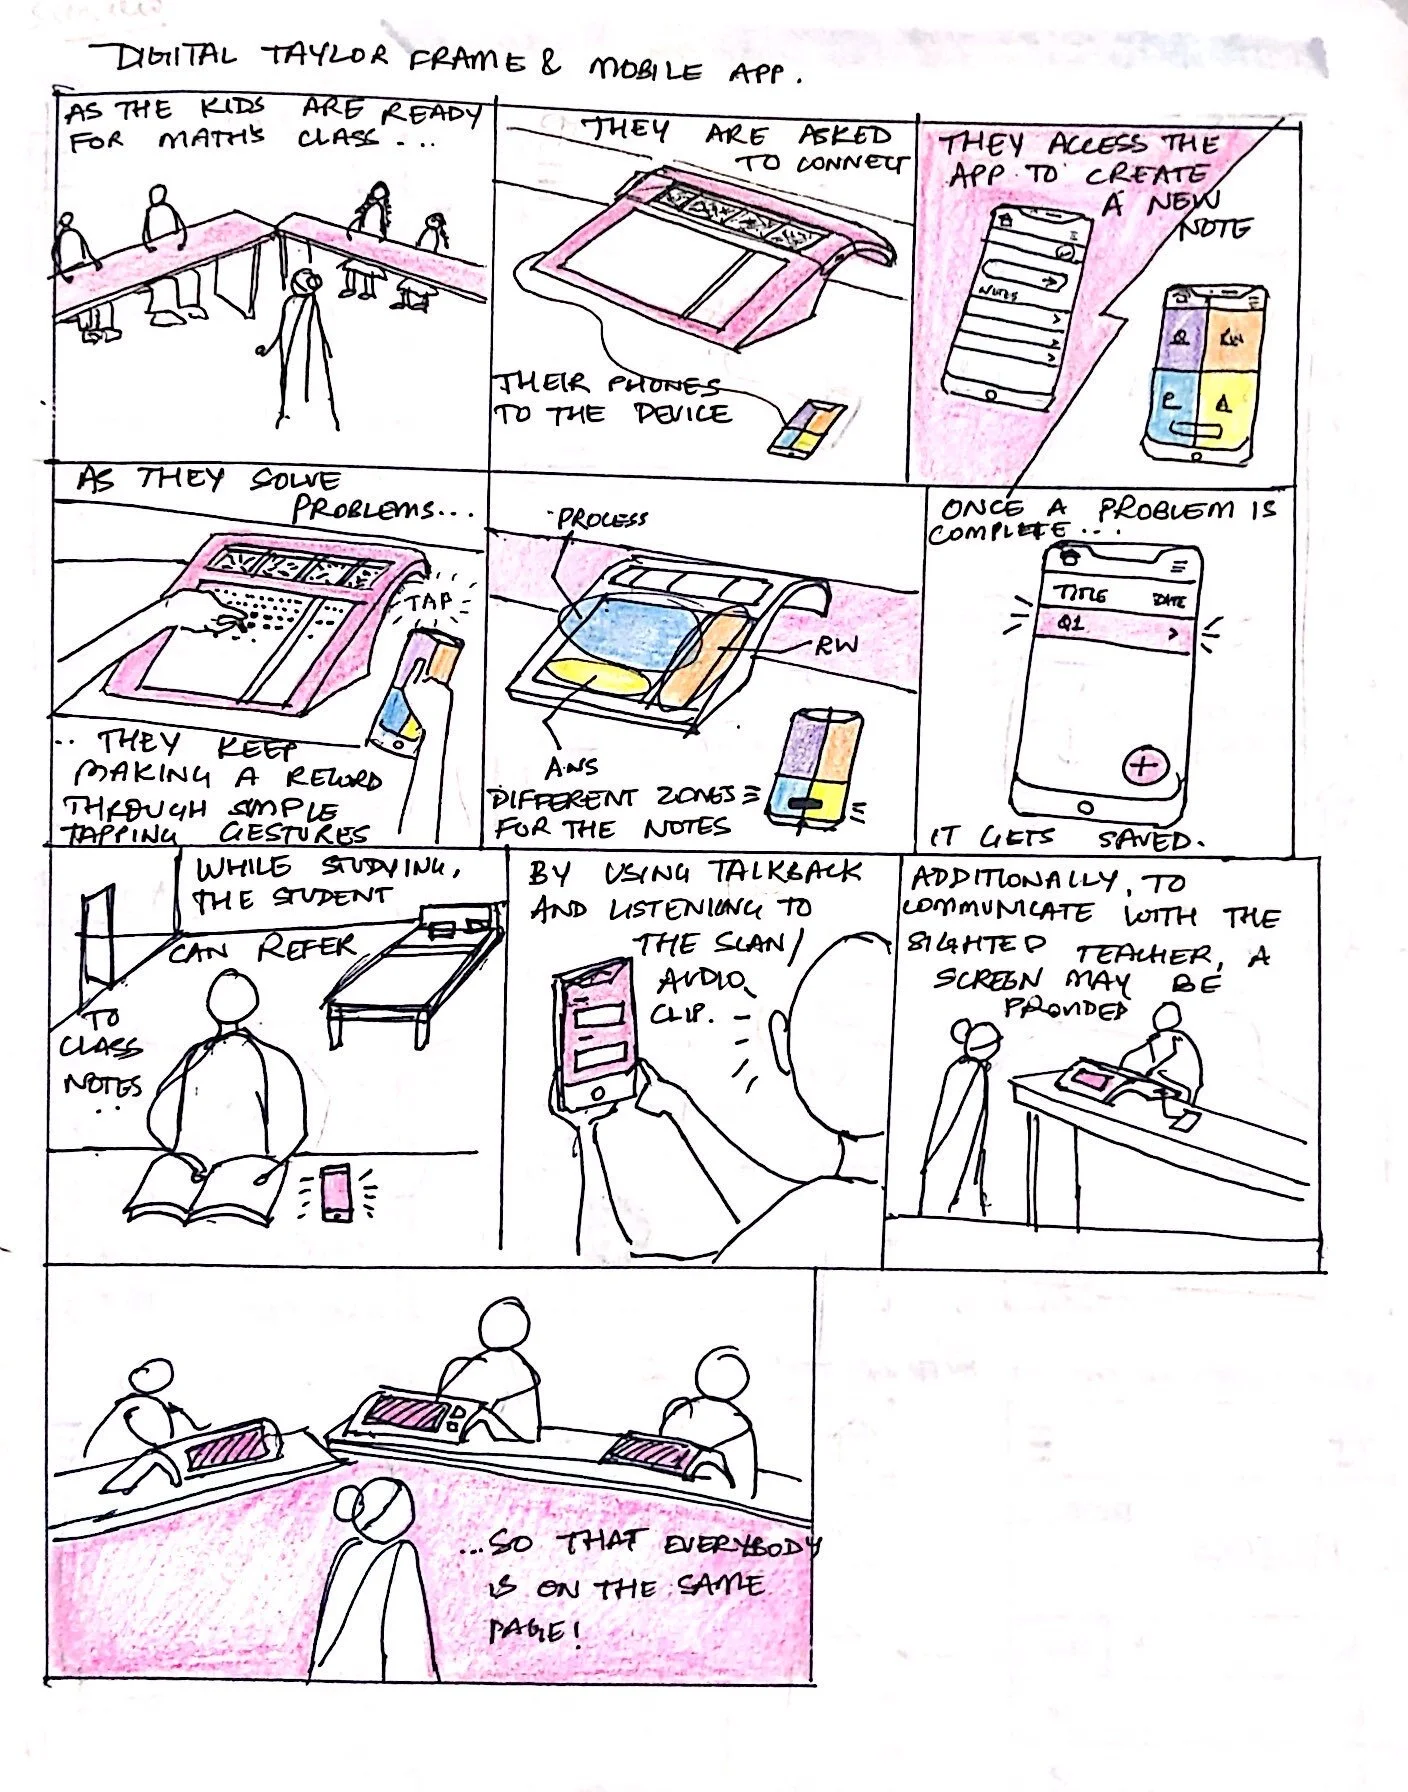 DIGITAL TAYLOR FRAME & MOBILE APP.
AS THE KIDS ARE READY
FOR MATHS CLASS....
THEY ARE ASKED
TO CONNECT
THEIR PHONES
TO THE DEVICE
THEY ACCESS THE
APP TO CREATE
A NEW
NOTE
NOTES
Q
RW
P
A
AS THEY SOLVE
PROBLEMS...
TAP
.. THEY KEEP
MAKING A RECORD
THROUGH SIMPLE
TAPPING GESTURES
PROCESS
RW
ANS
DIFFERENT ZONES
FOR THE NOTES
ONCE A PROBLEM IS
COMPLETE...
TITLE DATE
Q1 >
+
IT GETS SAVED.
WHILE STUDYING,
THE STUDENT
CAN REFER
TO
CLASS
NOTES
..
BY USING TALKBACK
AND LISTENING TO
THE SCAN/
AUDIO
CLIP.
ADDITIONALLY, TO
COMMUNICATE WITH THE
SIGHTED TEACHER, A
SCREEN MAY BE
PROVIDED
...SO THAT EVERYBODY
IS ON THE SAME
PAGE!